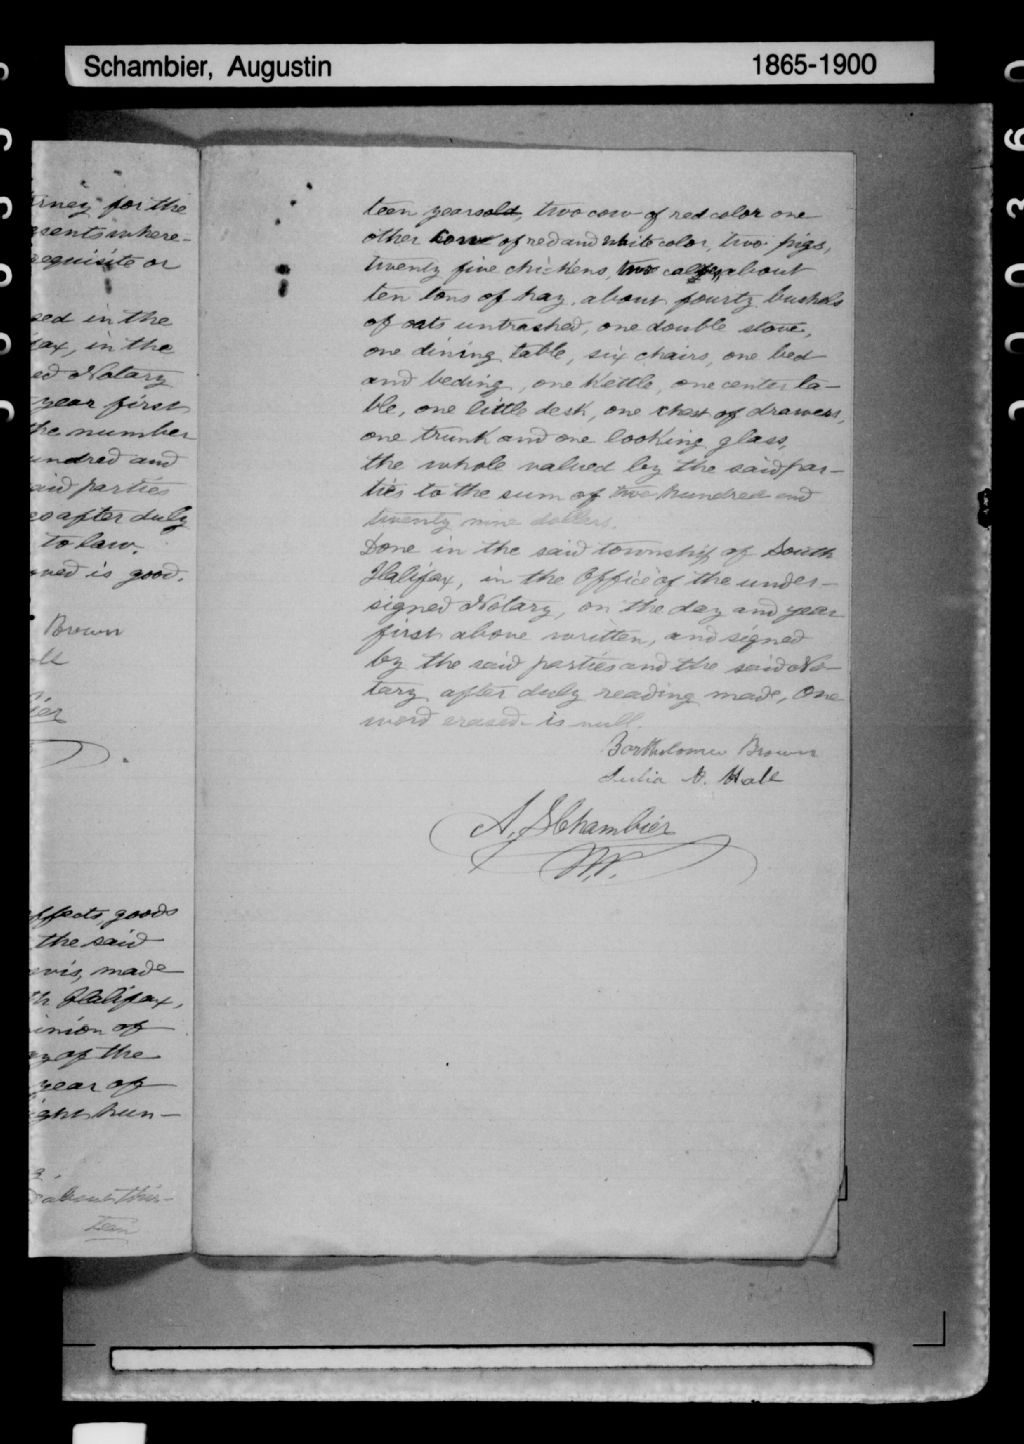 Schambier, Augustin 1865-1900
rney for the
sents where-
requisite or
sed in the
fax, in the
ed Notary
year first
the number
undred and
aid parties
eo after duly
to law.
oved is good.
Brown
all
ier
effects, goods
the said
evis, made
th Halifax,
inion of
ay of the
year of
ight hun-
about thir-
teen
teen years old, two cow of red color one
other cow of red and white color, two pigs,
twenty five chickens, two about
ten tons of hay, about fourty bushels
of oats untrashed, one double stove,
one dining table, six chairs, one bed
and beding, one kettle, one center ta-
ble, one little desk, one chest of drawers,
one trunk and one looking glass,
the whole valued by the said par-
ties to the sum of two hundred and
twenty nine dollars.
Done in the said township of South
Halifax, in the Office of the under-
signed Notary, on the day and year
first above written, and signed
by the said parties and the said No-
tary after duly reading made, One
word erased is null.
Bartholomew Brown
Julia A. Hall
A. Schambier
N.P.